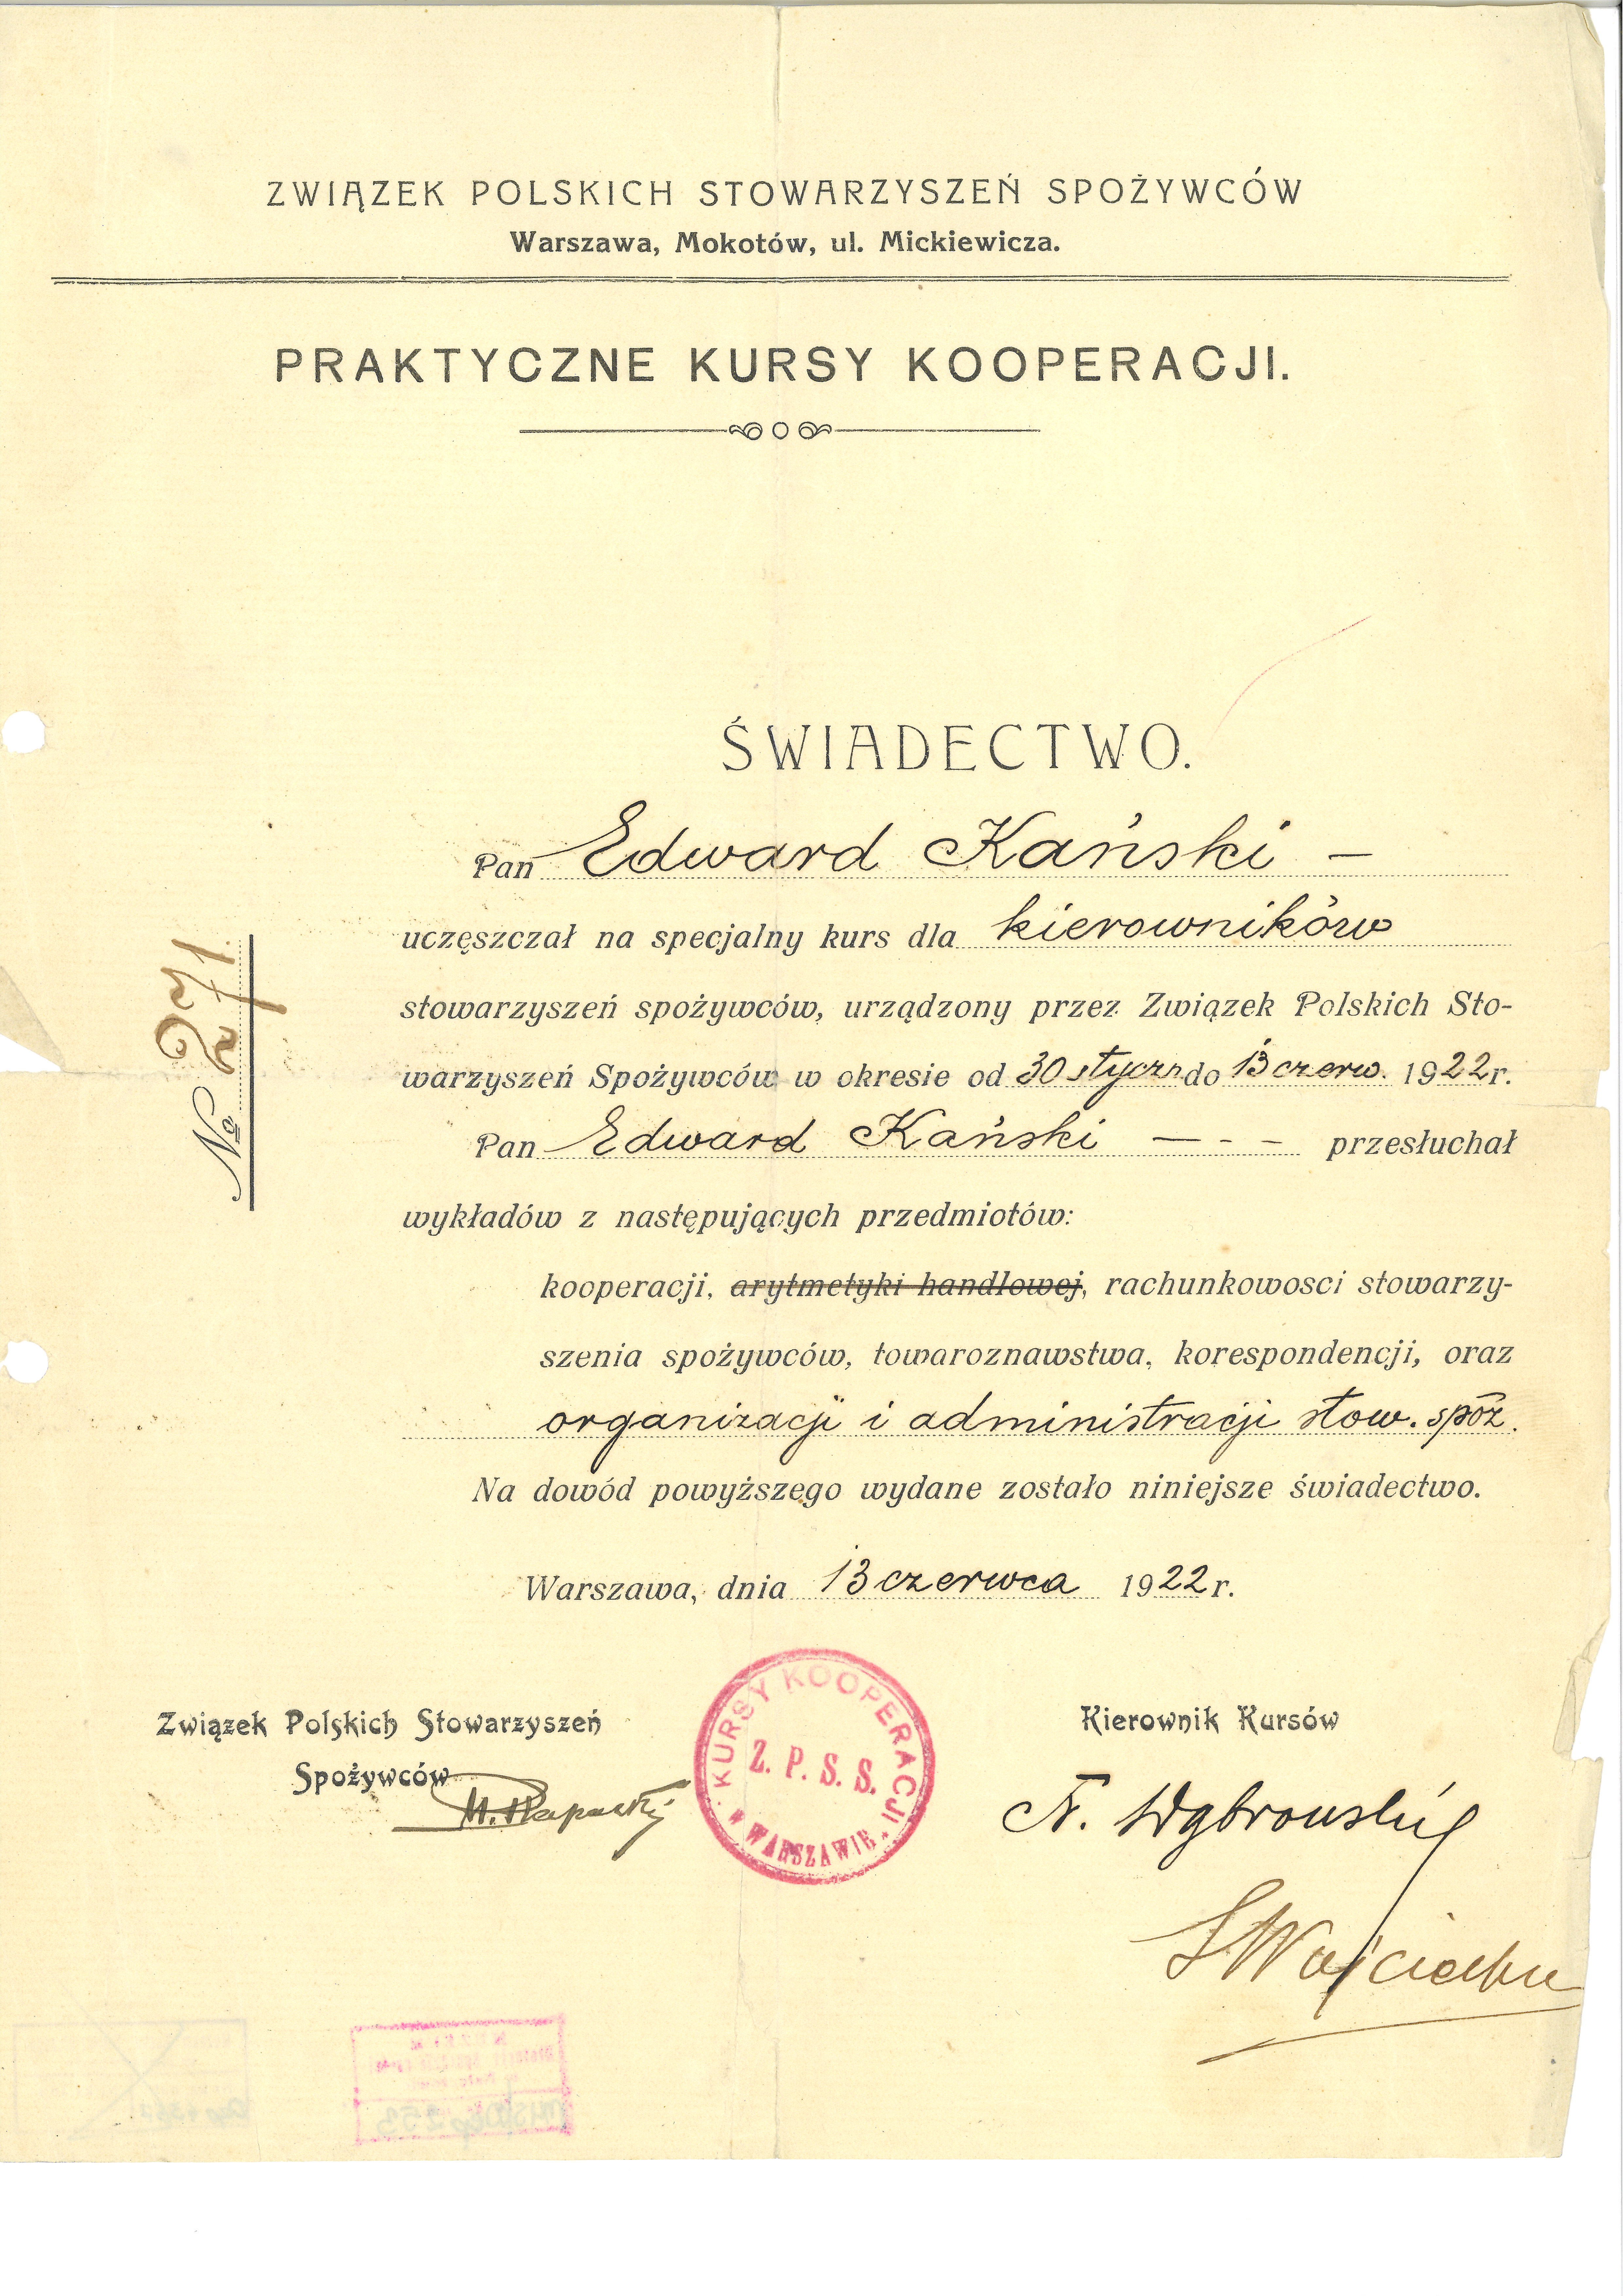 ZWIĄZEK POLSKICH STOWARZYSZEŃ SPOŻYWCÓW
Warszawa, Mokotów, ul. Mickiewicza.
PRAKTYCZNE KURSY KOOPERACJI.
ŚWIADECTWO.
Pan Edward Kański —
uczęszczał na specjalny kurs dla kierowników
stowarzyszeń spożywców, urządzony przez Związek Polskich Sto-
warzyszeń Spożywców w okresie od 30 styczn do 13 czerw. 1922 r.
Pan Edward Kański — - - przesłuchał
wykładów z następujących przedmiotów:
kooperacji, arytmetyki handlowej, rachunkowosci stowarzy-
szenia spożywców, towaroznawstwa, korespondencji, oraz
organizacji i administracji stow. spoż.
Na dowód powyższego wydane zostało niniejsze świadectwo.
Warszawa, dnia 13 czerwca 1922 r.
№ 271
Związek Polskich Stowarzyszeń
Spożywców
M. Rapacki
KURSY KOOPERACJI
Z. P. S. S.
W WARSZAWIE
Kierownik Kursów
Fr. Dąbrowski